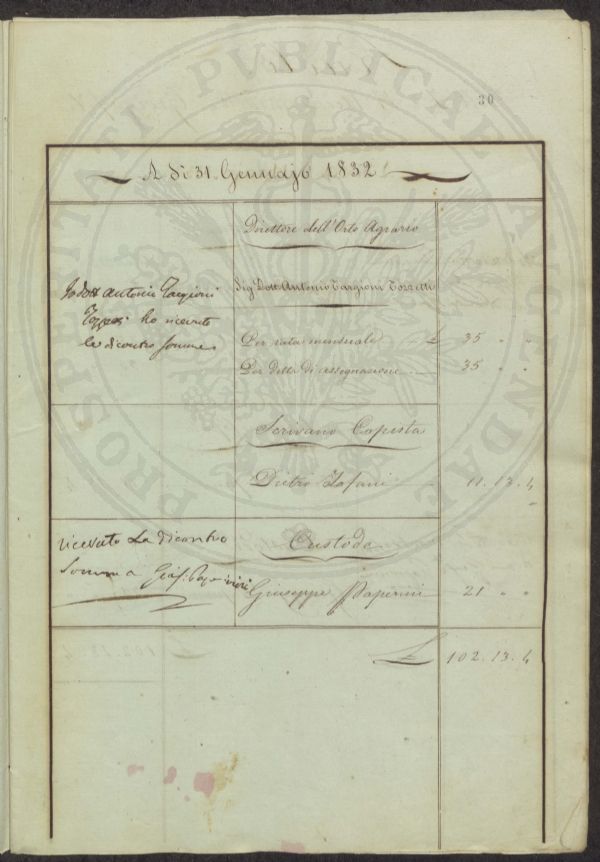 30
A dì 31. Gennajo 1832
Direttore dell'Orto Agrario
Sig. Dott. Antonio Targioni Tozzetti
Io dott antonio Targioni
Tozzetti ho ricevuto
la di contro somma
Per rata mensuale £ 35 " "
Per detta di assegnazione 35 " "
Scrivano Copista
Pietro 11. 13. 4
ricevuto La di contro
Somma Gius. Paperini
Custode
Giuseppe Paperini 21 " "
£ 102. 13. 4
PROSPERITATI PUBLICAE AUGENDAE